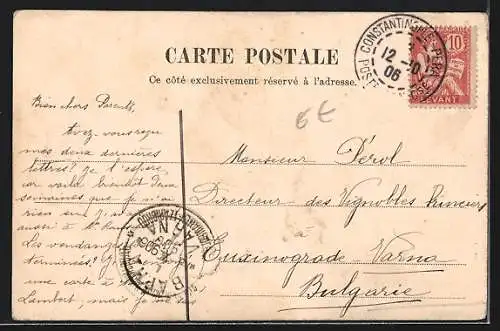 CARTE POSTALE
Ce côté exclusivement réservé à l'adresse.
CONSTANTINOPLE-PERA
12 -10
06
POSTE
10
LEVANT
6€
Bien chers Parents,
Avez vous reçu
mes deux dernières
lettres? Je l'espère
car voilà bientôt deux
semaines que je n'ai
rien
Les vendanges
terminées?
une carte à
Lambert, mais je
Monsieur Pérol
Directeur des Vignobles Princiers
à
Euxinograde Varna
Bulgarie
ВАРНА
VARNA